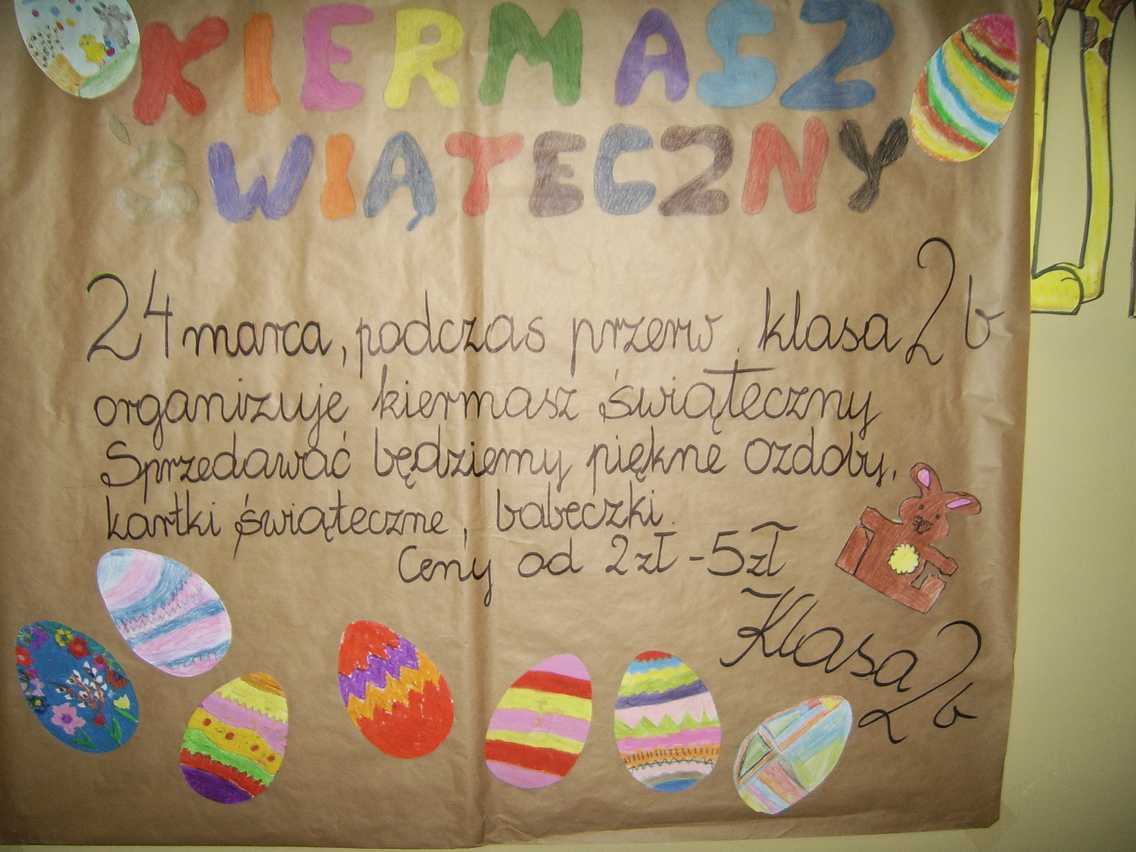 KIERMASZ
ŚWIĄTECZNY
24 marca, podczas przerw klasa 2b
organizuje kiermasz świąteczny
Sprzedawać będziemy piękne ozdoby,
kartki świąteczne, babeczki.
Ceny od 2zł - 5zł
Klasa 2b